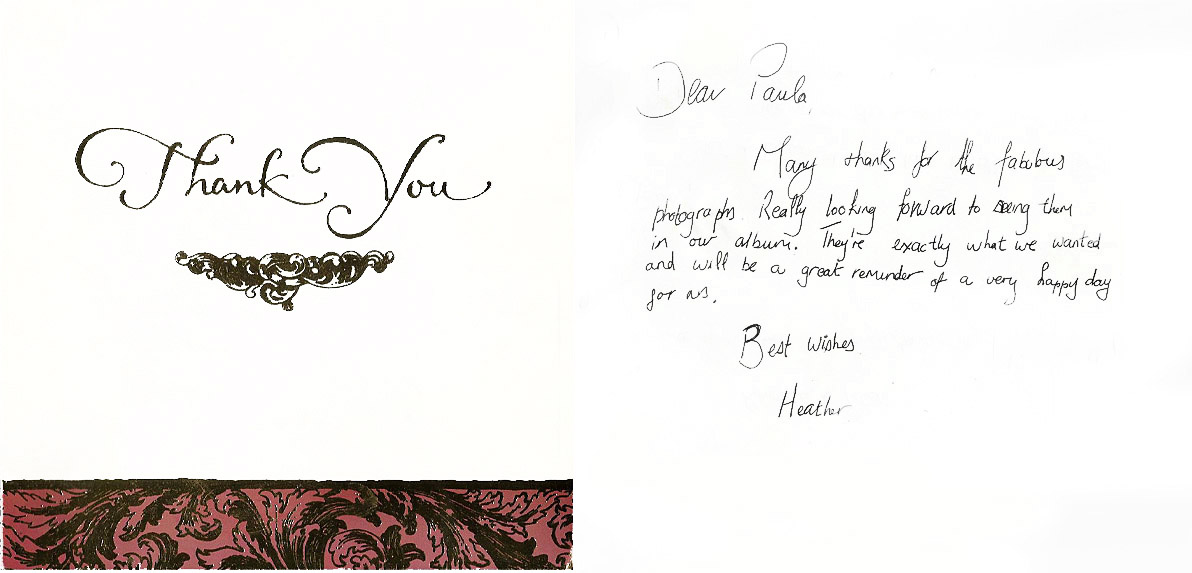 Thank You
Dear Paula,
Many thanks for the fabulous
photographs. Really looking forward to seeing them
in our album. They're exactly what we wanted
and will be a great reminder of a very happy day
for us.
Best wishes
Heather